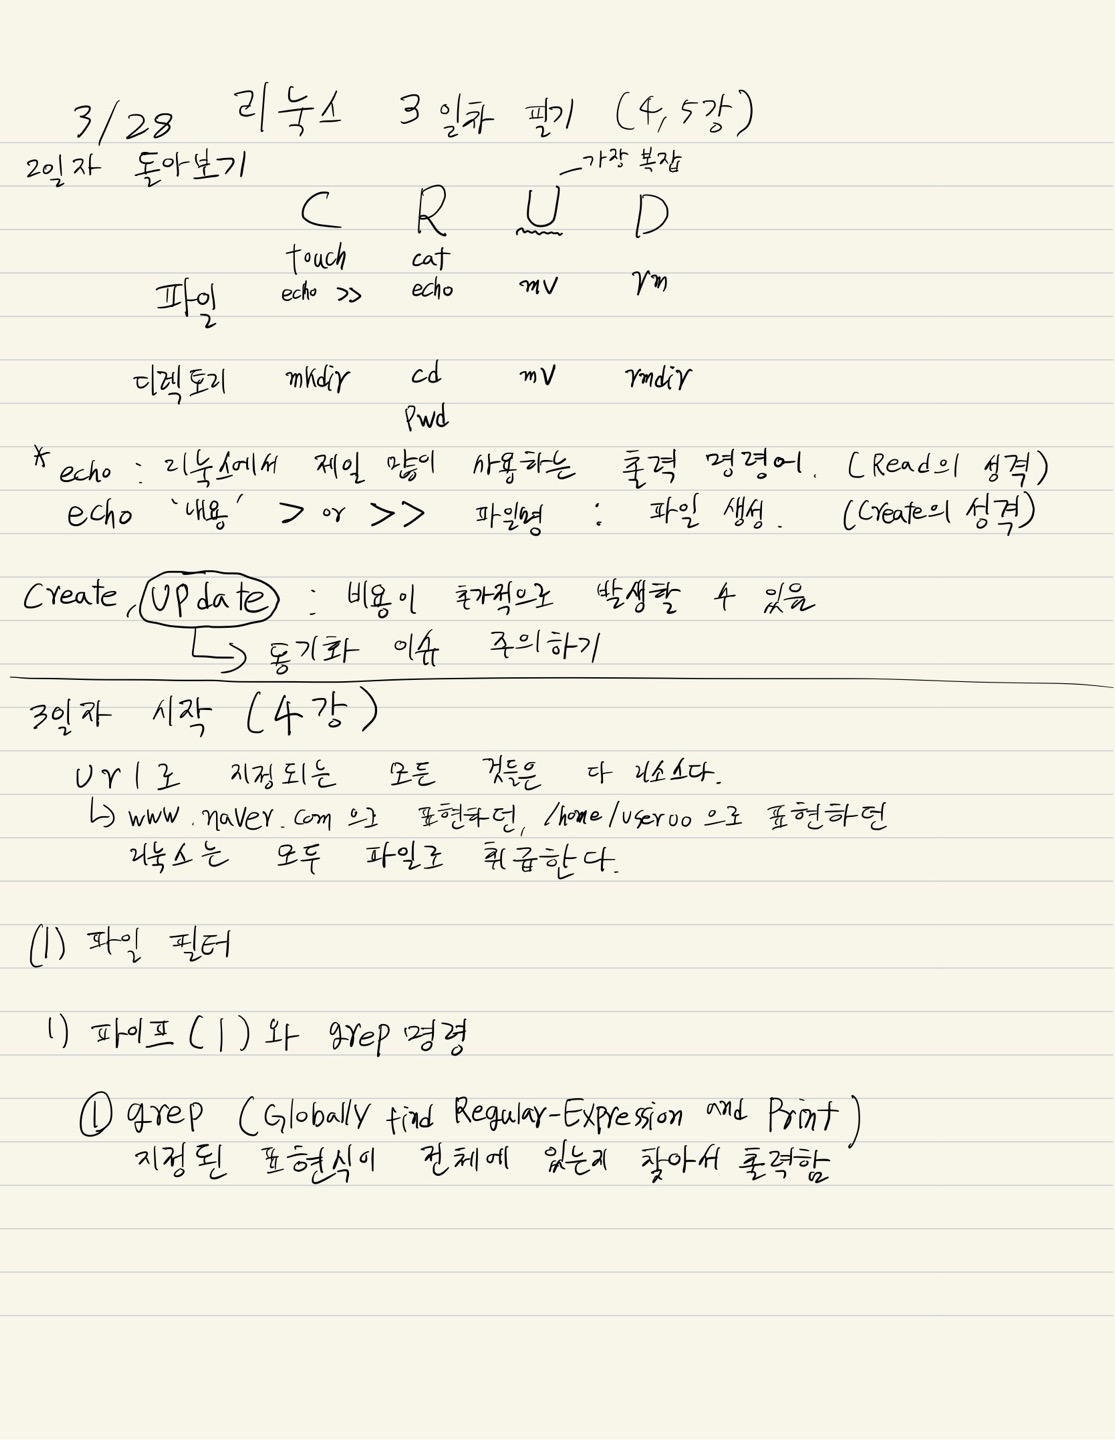 3/28 리눅스 3일차 필기 (4,5강)
2일차 돌아보기
가장 복잡
C R U D
touch cat
파일 echo >> echo mv rm
디렉토리 mkdir cd mv rmdir
pwd
* echo : 리눅스에서 제일 많이 사용하는 출력 명령어. (Read의 성격)
echo '내용' > or >> 파일명 : 파일 생성. (Create의 성격)
Create, Update : 비용이 추가적으로 발생할 수 있음
↳ 동기화 이슈 주의하기
3일차 시작 (4강)
url로 지정되는 모든 것들은 다 리소스다.
↳ www.naver.com 으로 표현하던, /home/user00 으로 표현하던
리눅스는 모두 파일로 취급한다.
(1) 파일 필터
1) 파이프(|)와 grep 명령
① grep (Globally find Regular-Expression and Print)
지정된 표현식이 전체에 있는지 찾아서 출력함